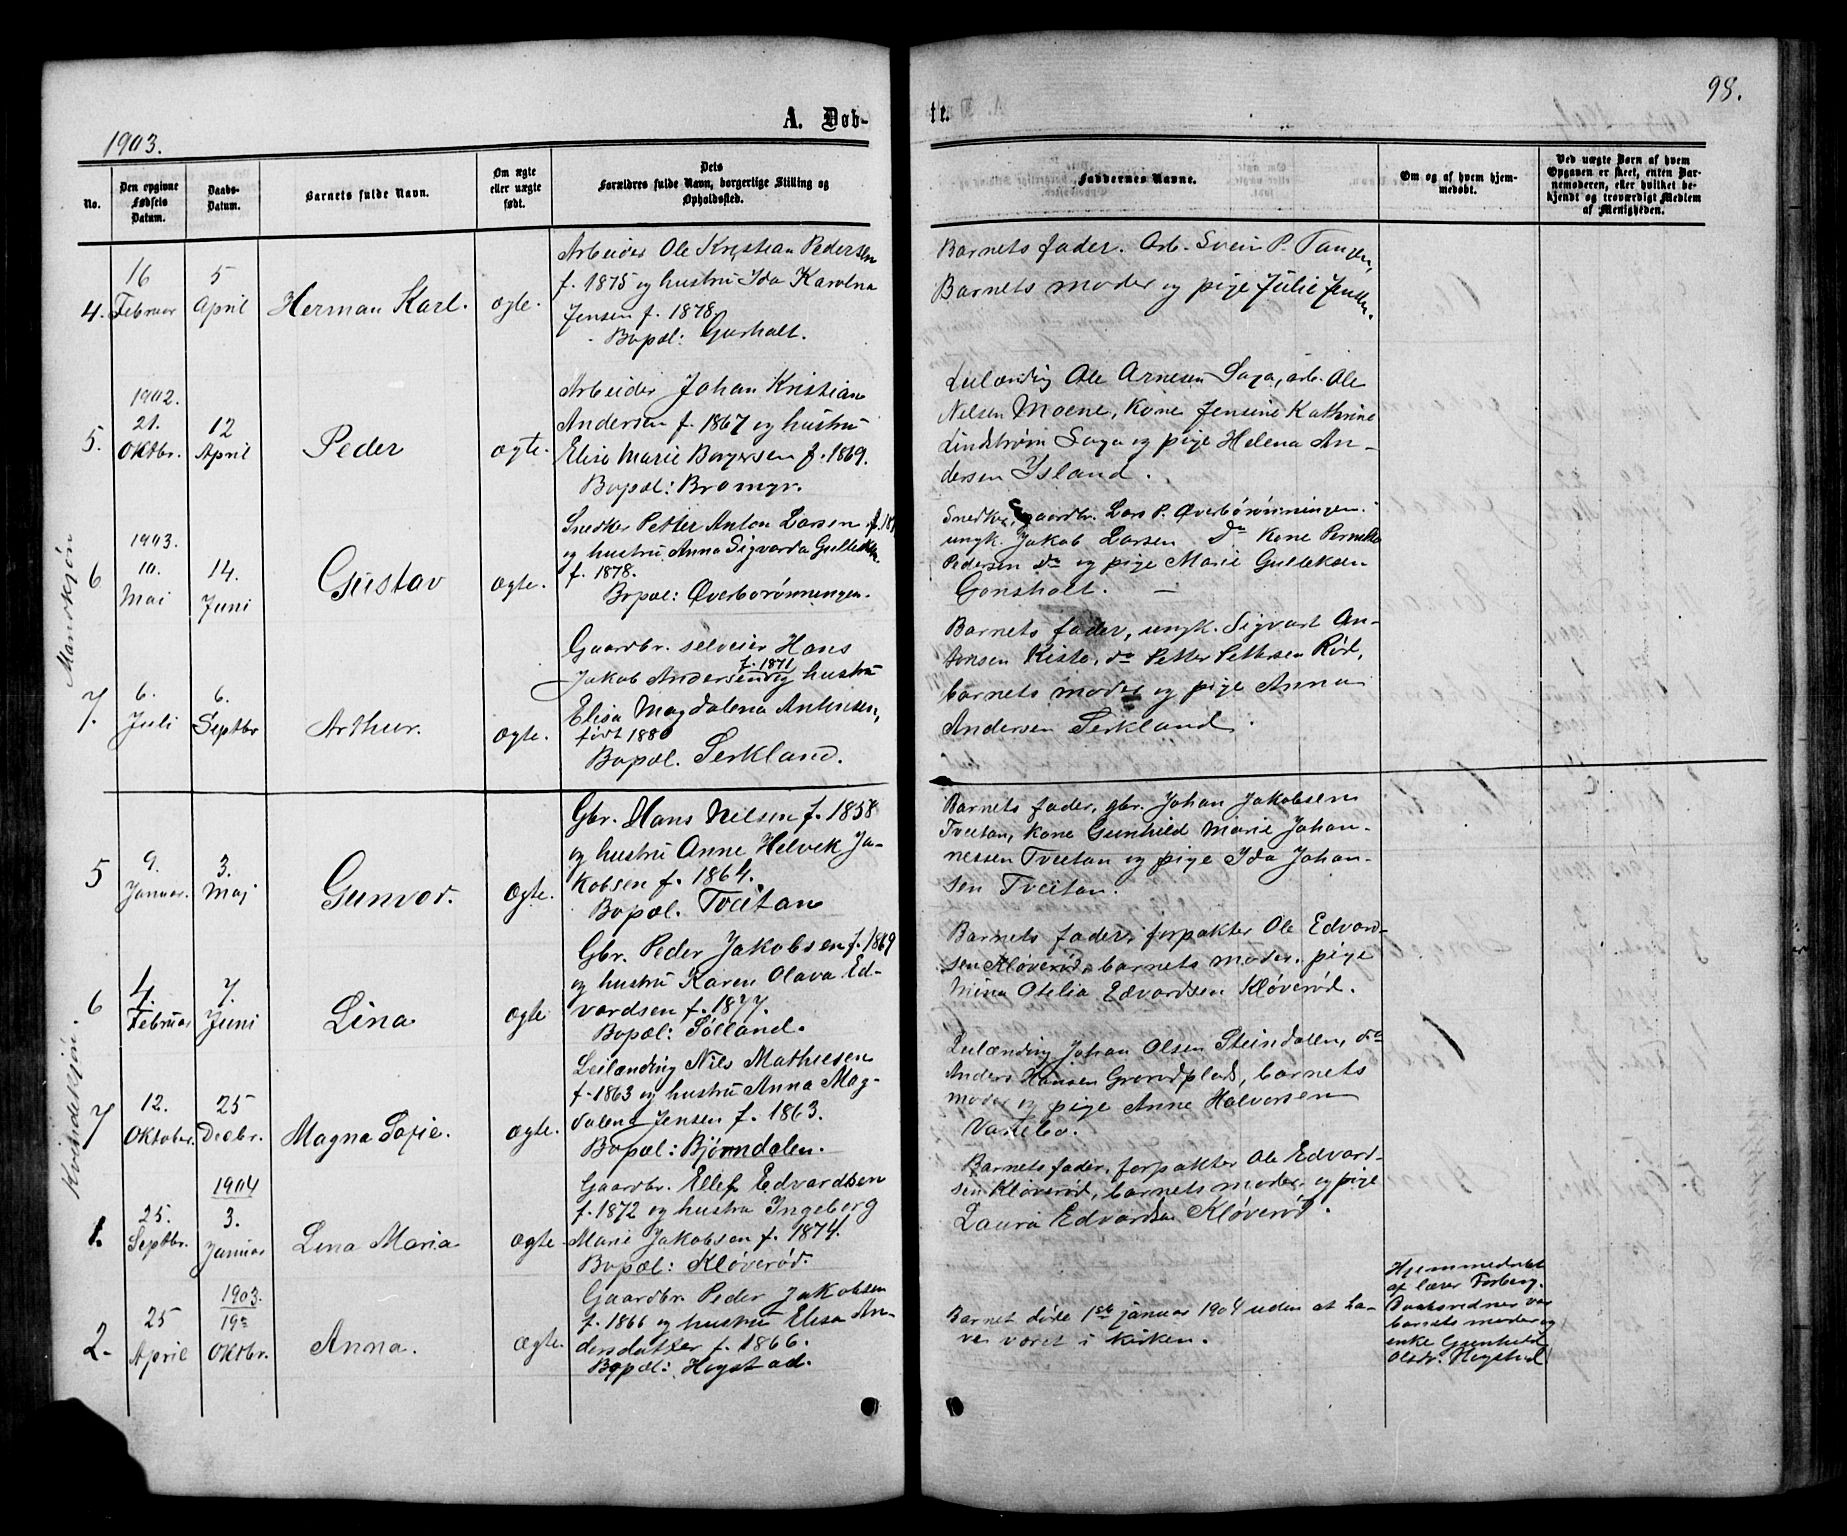 1903.
A. Døb-
te.
98.
No.
Den opgivne Fødsels Datum.
Daabs-Datum.
Barnets fulde Navn.
Om ægte eller uægte født.
Dets
Forældres fulde Navn, borgerlige Stilling og
Opholdssted.
Faddernes Navne.
Om og af hvem hjem-
medøbt.
Ved uægte Børn af hvem
Opgaven er skeet, enten Bar-
nemoderen, eller hvilket be-
kjendt og troværdigt Medlem
af Menigheden.
Mandkjøn
4. 16 Februar 5 April Herman Karl. ægte.
Arbeider Ole Kristian Pedersen
f. 1875 og hustru Ida Karolna
Jensen f. 1878.
Bopæl: Gurholt.
Barnets fader. Arb. Svein P. Tangen,
Barnets moder og pige Julie Jensen.
5. 1902. 21. Oktbr. 12 April Peder ægte.
Arbeider Johan Kristian
Andersen f. 1867 og hustru
Elise Marie Borgersen f. 1869.
Bopæl: Bromyr.
Leilænding Ole Arnesen Saga, arb. Ole
Nelsen Moene, Kone Jensine Kathrine
Lindstrøm Saga og pige Helena An-
dersen Island.
6 1903. 10. Mai 14. Juni Gustav ægte.
Snedker Petter Anton Larsen
og hustru Anna Sigvarda Golleksen
f. 1878.
Bopæl: Øverbørønningen.
Snedker, Gaardbr. Lars P. Øverbørønningen.
ungk. Jakob Larsen do Kone Pernella
Pedersen do og pige Marie Gulleksen
Gonsholt.
7. 6. Juli 6. Septbr Arthur. ægte.
Gaardbr. selveier Hans
Jakob Andersen f. 1871 og hustru
Elisa Magdalena Antonsen,
født 1880
Bopæl. Serkland.
Barnets fader, ungk. Sigvart An-
tonsen Kiste, do Petter Pettersen Rød,
barnets moder og pige Anna
Andersen Serkland.
Kvindekjøn.
5 9. Januar. 3. Maj Gunvor. Ægte.
Gbr. Hans Nilsen f. 1858
og hustru Anne Helvek Ja-
kobsen f. 1864.
Bopæl. Tveitan
Barnets fader, gbr. Johan Jakobsen
Tveitan, kone Gunhild Marie Johan-
nessen Tveitan og pige Ida Johan-
sen Tveitan.
6 4. Februar 7. Juni Lina ægte
Gbr. Peder Jakobsen f. 1869
og hustru Karen Olava Ed-
vardsen f. 1877.
Bopæl: Sølland.
Barnets fader, forpakter Ole Edvard-
sen Kløverød, barnets moder, pige
Mina Otelia Edvardsen Kløverød.
7 12. Oktober. 25 Decbr. Magna Sofie. Ægte.
Leilænding Nils Mathiesen
f. 1863 og hustru Anna Mag-
dalena Jensen f. 1863.
Bopæl: Bjørndalen.
Leilænding Johan Olsen Steindalen, do
Anders Hansen Grorødplads, barnets
moder og pige Anne Halvorsen
1. 25. Septbr. 1904 3. Januar Lina Maria Ægte.
Gaardbr. Ellef Edvardsen
f. 1872 og hustru Ingeborg
Marie Jakobsen f. 1874.
Bopæl: Kløverød.
Barnets fader, forpakter Ole Edvard-
sen Kløverød, barnets moder, og pige
Laura Edvardsen Kløverød.
2. 25 April 1903. 19de Oktbr. Anna. Ægte.
Gaardbr. Peder Jakobsen
f. 1866 og hustru Elisa An-
dersdatter f. 1866.
Bopæl: Hogstad.
Barnet døde 1ste januar 1904 uden at ha-
ve været i kirken.
Hjemmedøbt
af lærer Forberg.
Daabsvidner var
barnets moder og
enke Gunhild
Olsdr. Hogstad